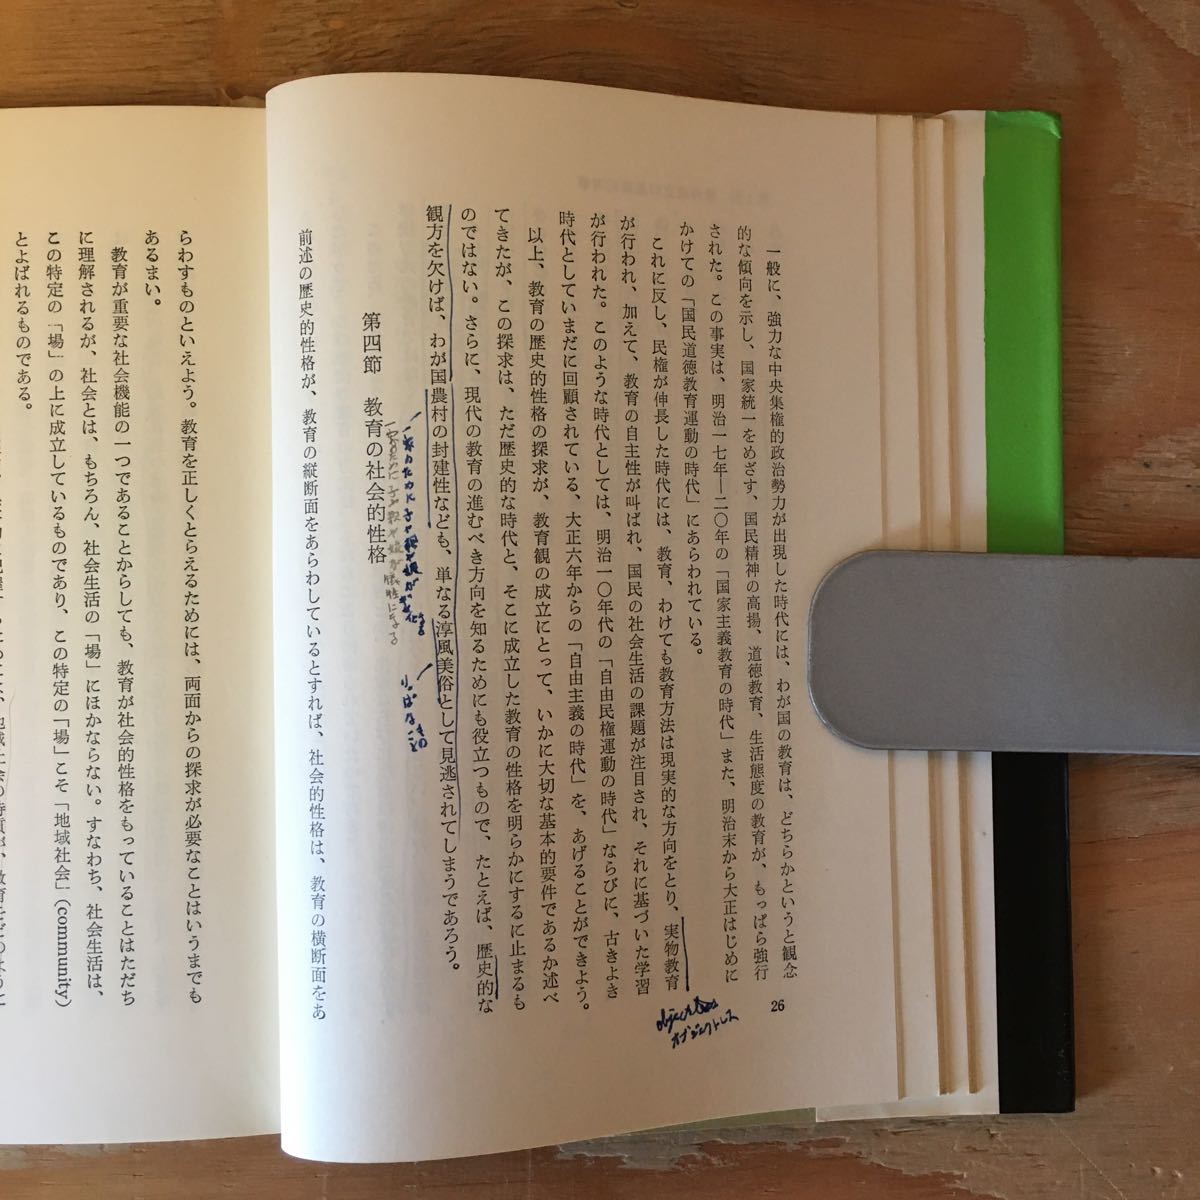 一般に、強力な中央集権的政治勢力が出現した時代には、わが国の教育は、どちらかというと観念
的な傾向を示し、国家統一をめざす、国民精神の高揚、道徳教育、生活態度の教育が、もっぱら強行
された。この事実は、明治一七年―二〇年の「国家主義教育の時代」また、明治末から大正はじめに
かけての「国民道徳教育運動の時代」にあらわれている。
これに反し、民権が伸長した時代には、教育、わけても教育方法は現実的な方向をとり、実物教育
が行われ、加えて、教育の自主性が叫ばれ、国民の社会生活の課題が注目され、それに基づいた学習
が行われた。このような時代としては、明治一〇年代の「自由民権運動の時代」ならびに、古きよき
時代としていまだに回顧されている、大正六年からの「自由主義の時代」を、あげることができよう。
以上、教育の歴史的性格の探求が、教育観の成立にとって、いかに大切な基本的要件であるか述べ
てきたが、この探求は、ただ歴史的な時代と、そこに成立した教育の性格を明らかにするに止まるも
のではない。さらに、現代の教育の進むべき方向を知るためにも役立つもので、たとえば、歴史的な
観方を欠けば、わが国農村の封建性なども、単なる淳風美俗として見逃されてしまうであろう。
りっぱな
第四節 教育の社会的性格
前述の歴史的性格が、教育の縦断面をあらわしているとすれば、社会的性格は、教育の横断面をあ
26
オブジェクトレス
らわすものといえよう。教育を正しくとらえるためには、両面からの探求が必要なことはいうまでも
あるまい。
教育が重要な社会機能の一つであることからしても、教育が社会的性格をもっていることはただち
に理解されるが、社会とは、もちろん、社会生活の「場」にほかならない。すなわち、社会生活は、
この特定の「場」の上に成立しているものであり、この特定の「場」こそ「地域社会」（community）
とよばれるものである。